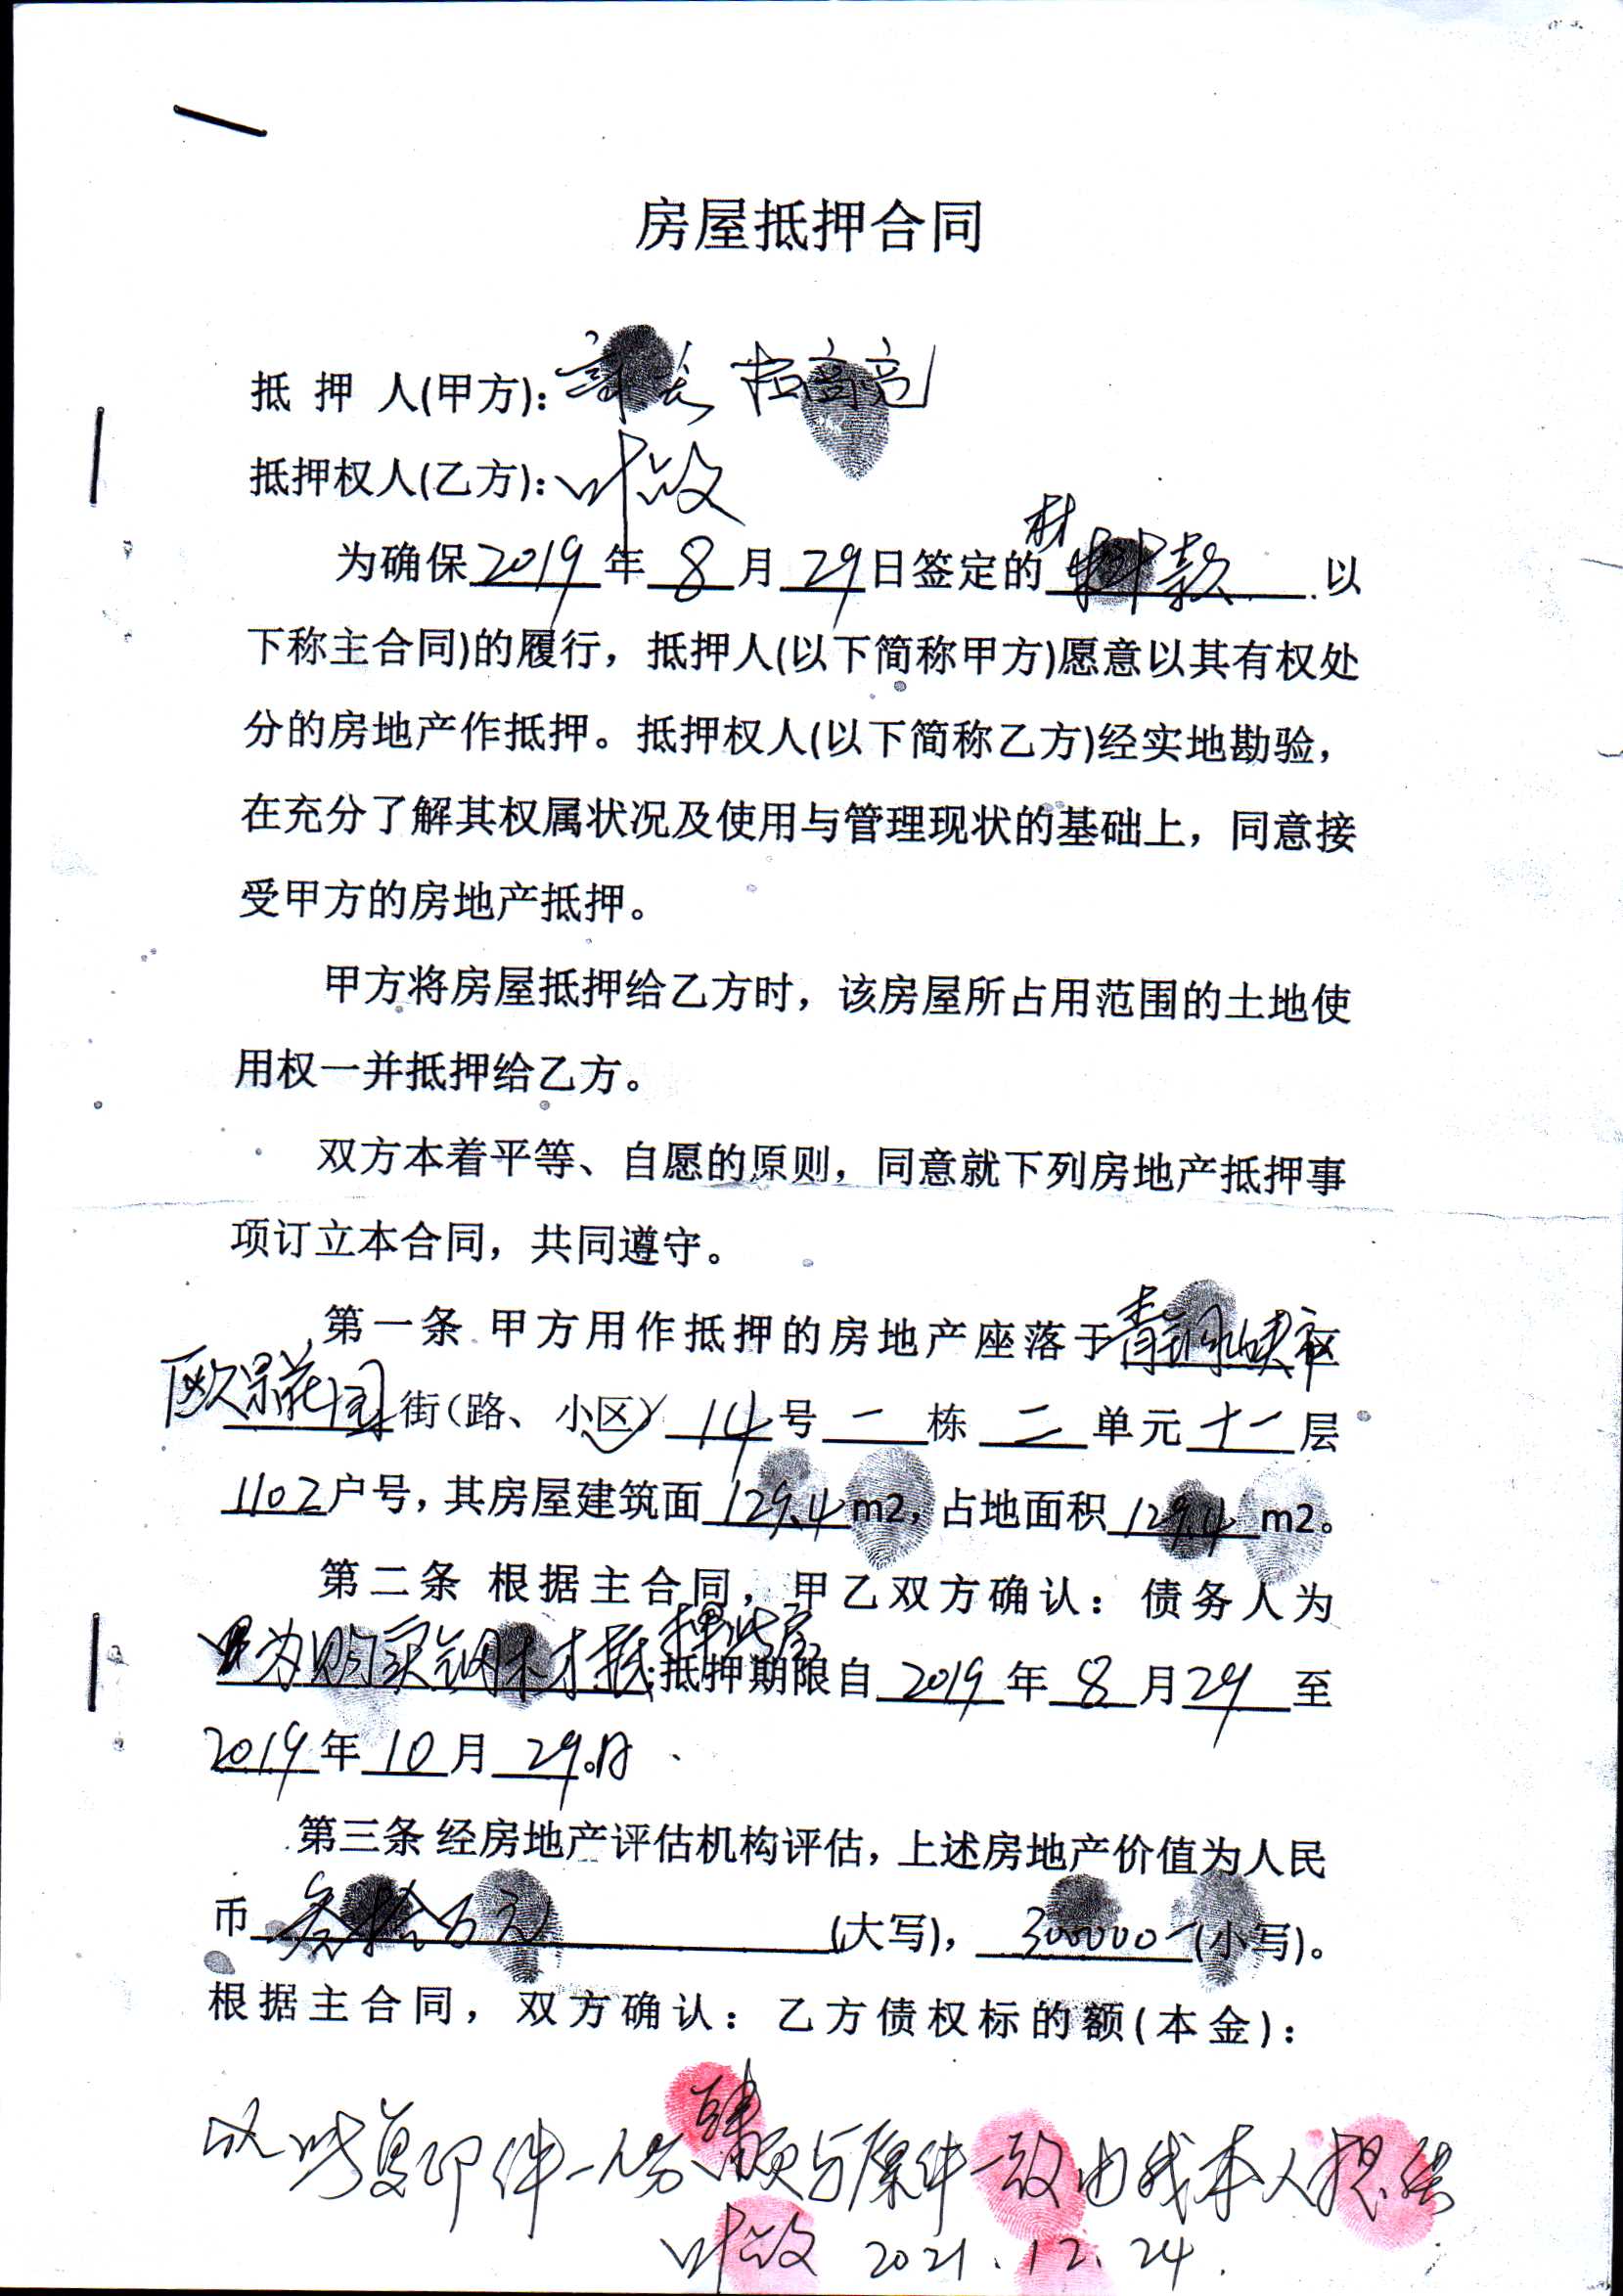 房屋抵押合同
抵 押 人(甲方):
抵押权人(乙方): 叶
为确保2019年8月29日签定的材料款以
下称主合同)的履行，抵押人(以下简称甲方)愿意以其有权处
分的房地产作抵押。抵押权人(以下简称乙方)经实地勘验，
在充分了解其权属状况及使用与管理现状的基础上，同意接
受甲方的房地产抵押。
甲方将房屋抵押给乙方时，该房屋所占用范围的土地使
用权一并抵押给乙方。
双方本着平等、自愿的原则，同意就下列房地产抵押事
项订立本合同，共同遵守。
第一条 甲方用作抵押的房地产座落于青铜峡市区
欧景花园街(路、小区) 14号一栋二单元十一层
1102户号，其房屋建筑面129.4m2，占地面积129.4m2。
第二条 根据主合同，甲乙双方确认：债务人为
为购买钢木材抵押此房;抵押期限自2019年8月29至
2019年10月29。日
第三条 经房地产评估机构评估，上述房地产价值为人民
币叁拾万元(大写)，300000(小写)。
根据主合同，双方确认：乙方债权标的额(本金)：
以此复印件一份肆页与原件一致由我本人提供
叶 2021.12.24.